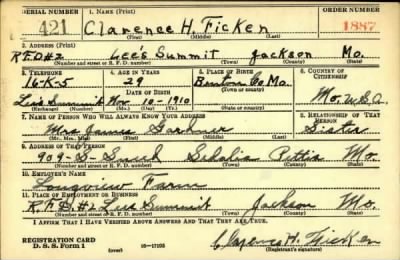 SERIAL NUMBER 1. NAME (Print) ORDER NUMBER
421 Clarence H. Ficken 1887
(First) (Middle) (Last)
2. ADDRESS (Print)
R.F.D #2 Lee's Summit Jackson Mo.
(Number and street or R. F. D. number) (Town) (County) (State)
3. TELEPHONE 4. AGE IN YEARS 5. PLACE OF BIRTH 6. COUNTRY OF CITIZENSHIP
16-K-5 29 Benton Co Mo.
DATE OF BIRTH
Lees Summit Nov. 10-1910 Mo, U.S.A.
(Exchange) (Number) (Mo.) (Day) (Yr.) (State or country)
7. NAME OF PERSON WHO WILL ALWAYS KNOW YOUR ADDRESS 8. RELATIONSHIP OF THAT PERSON
Mrs James Gardner Sister
(Mr., Mrs., Miss) (First) (Middle) (Last)
9. ADDRESS OF THAT PERSON
909-S- Sedalia Pettis Mo.
(Number and street or R. F. D. number) (Town) (County) (State)
10. EMPLOYER'S NAME
Longview Farm
11. PLACE OF EMPLOYMENT OR BUSINESS
R.F.D. #2 Lees Summit Jackson Mo.
(Number and street or R. F. D. number) (Town) (County) (State)
I AFFIRM THAT I HAVE VERIFIED ABOVE ANSWERS AND THAT THEY ARE TRUE.
REGISTRATION CARD
D. S. S. Form 1 16-17105 Clarence H. Ficken
(Registrant's signature)